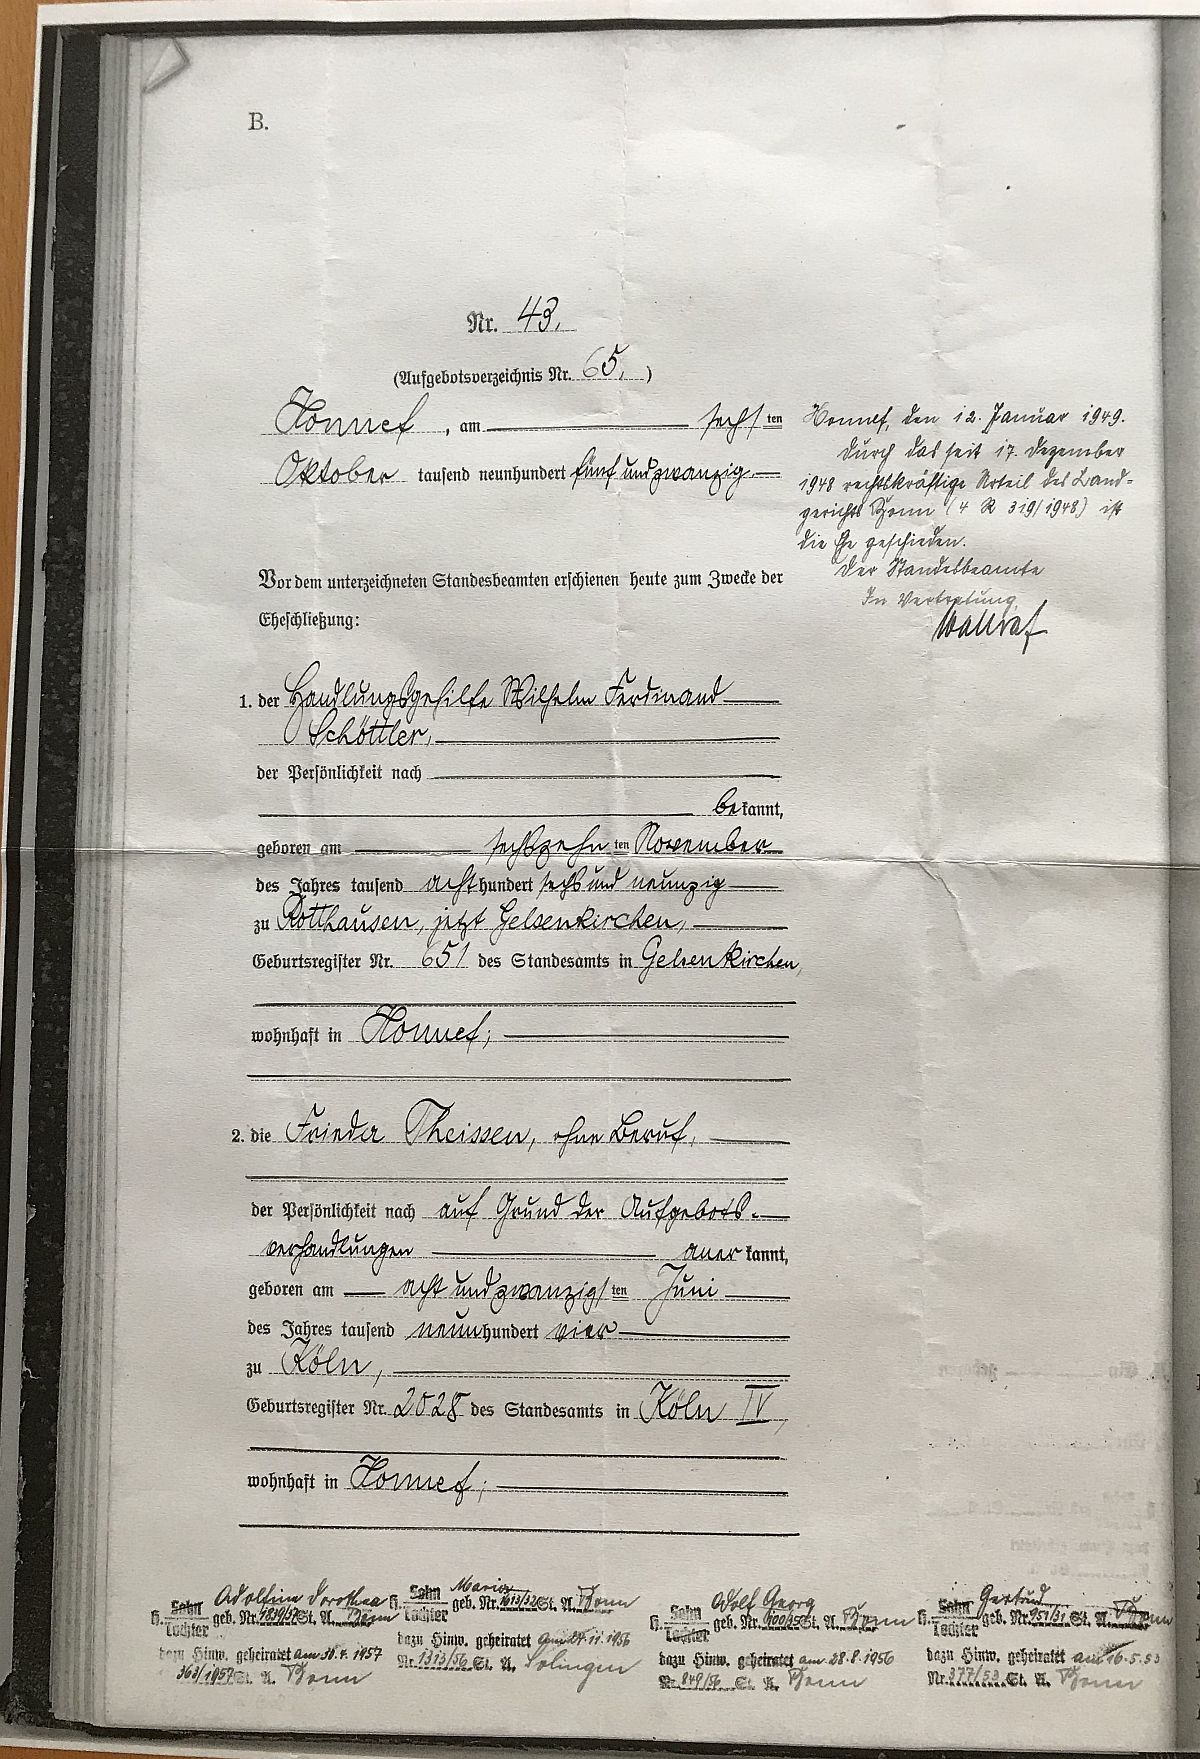 B.
Nr. 43.
(Aufgebotsverzeichnis Nr. 65.)
Honnef, am sechsten
Oktober tausend neunhundert fünf und zwanzig
Honnef, den 12. Januar 1949.
Durch das seit 17. Dezember
1948 rechtskräftige Urteil des Land-
gerichts Bonn (4 R 319/1948) ist
die Ehe geschieden.
Der Standesbeamte
In Vertretung
Wallraf
Vor dem unterzeichneten Standesbeamten erschienen heute zum Zwecke der
Eheschließung:
1. der Handlungsgehilfe Wilhelm Ferdinand
Schöttler,
der Persönlichkeit nach
bekannt,
geboren am sechszehnten November
des Jahres tausend achthundert sechs und neunzig
zu Rotthausen, jetzt Gelsenkirchen,
Geburtsregister Nr. 651 des Standesamts in Gelsenkirchen,
wohnhaft in Honnef;
2. die Frieda Theissen, ohne Beruf,
der Persönlichkeit nach auf Grund der Aufgebots-
verhandlungen anerkannt,
geboren am acht und zwanzigsten Juni
des Jahres tausend neunhundert vier
zu Köln,
Geburtsregister Nr. 2028 des Standesamts in Köln IV,
wohnhaft in Honnef;
Adolfine Dorothea
H. Sohn Tochter geb. Nr. St. A. Bonn
dazu Hinw. geheiratet am 30.4.1957
363/1957 St. A. Bonn
Maria
H. Sohn Tochter geb. Nr. 1613/32 St. A. Bonn
dazu Hinw. geheiratet am 24.11.1956
Nr. 1313/56 St. A. Solingen
Adolf Georg
H. Sohn Tochter geb. Nr. St. A. Bonn
dazu Hinw. geheiratet am 28.8.1956
Nr. 849/56 St. A. Bonn
Gertrud
H. Sohn Tochter geb. Nr. 951/31 St. A. Bonn
dazu Hinw. geheiratet am 16.5.53
Nr. 377/53 St. A. Bonn